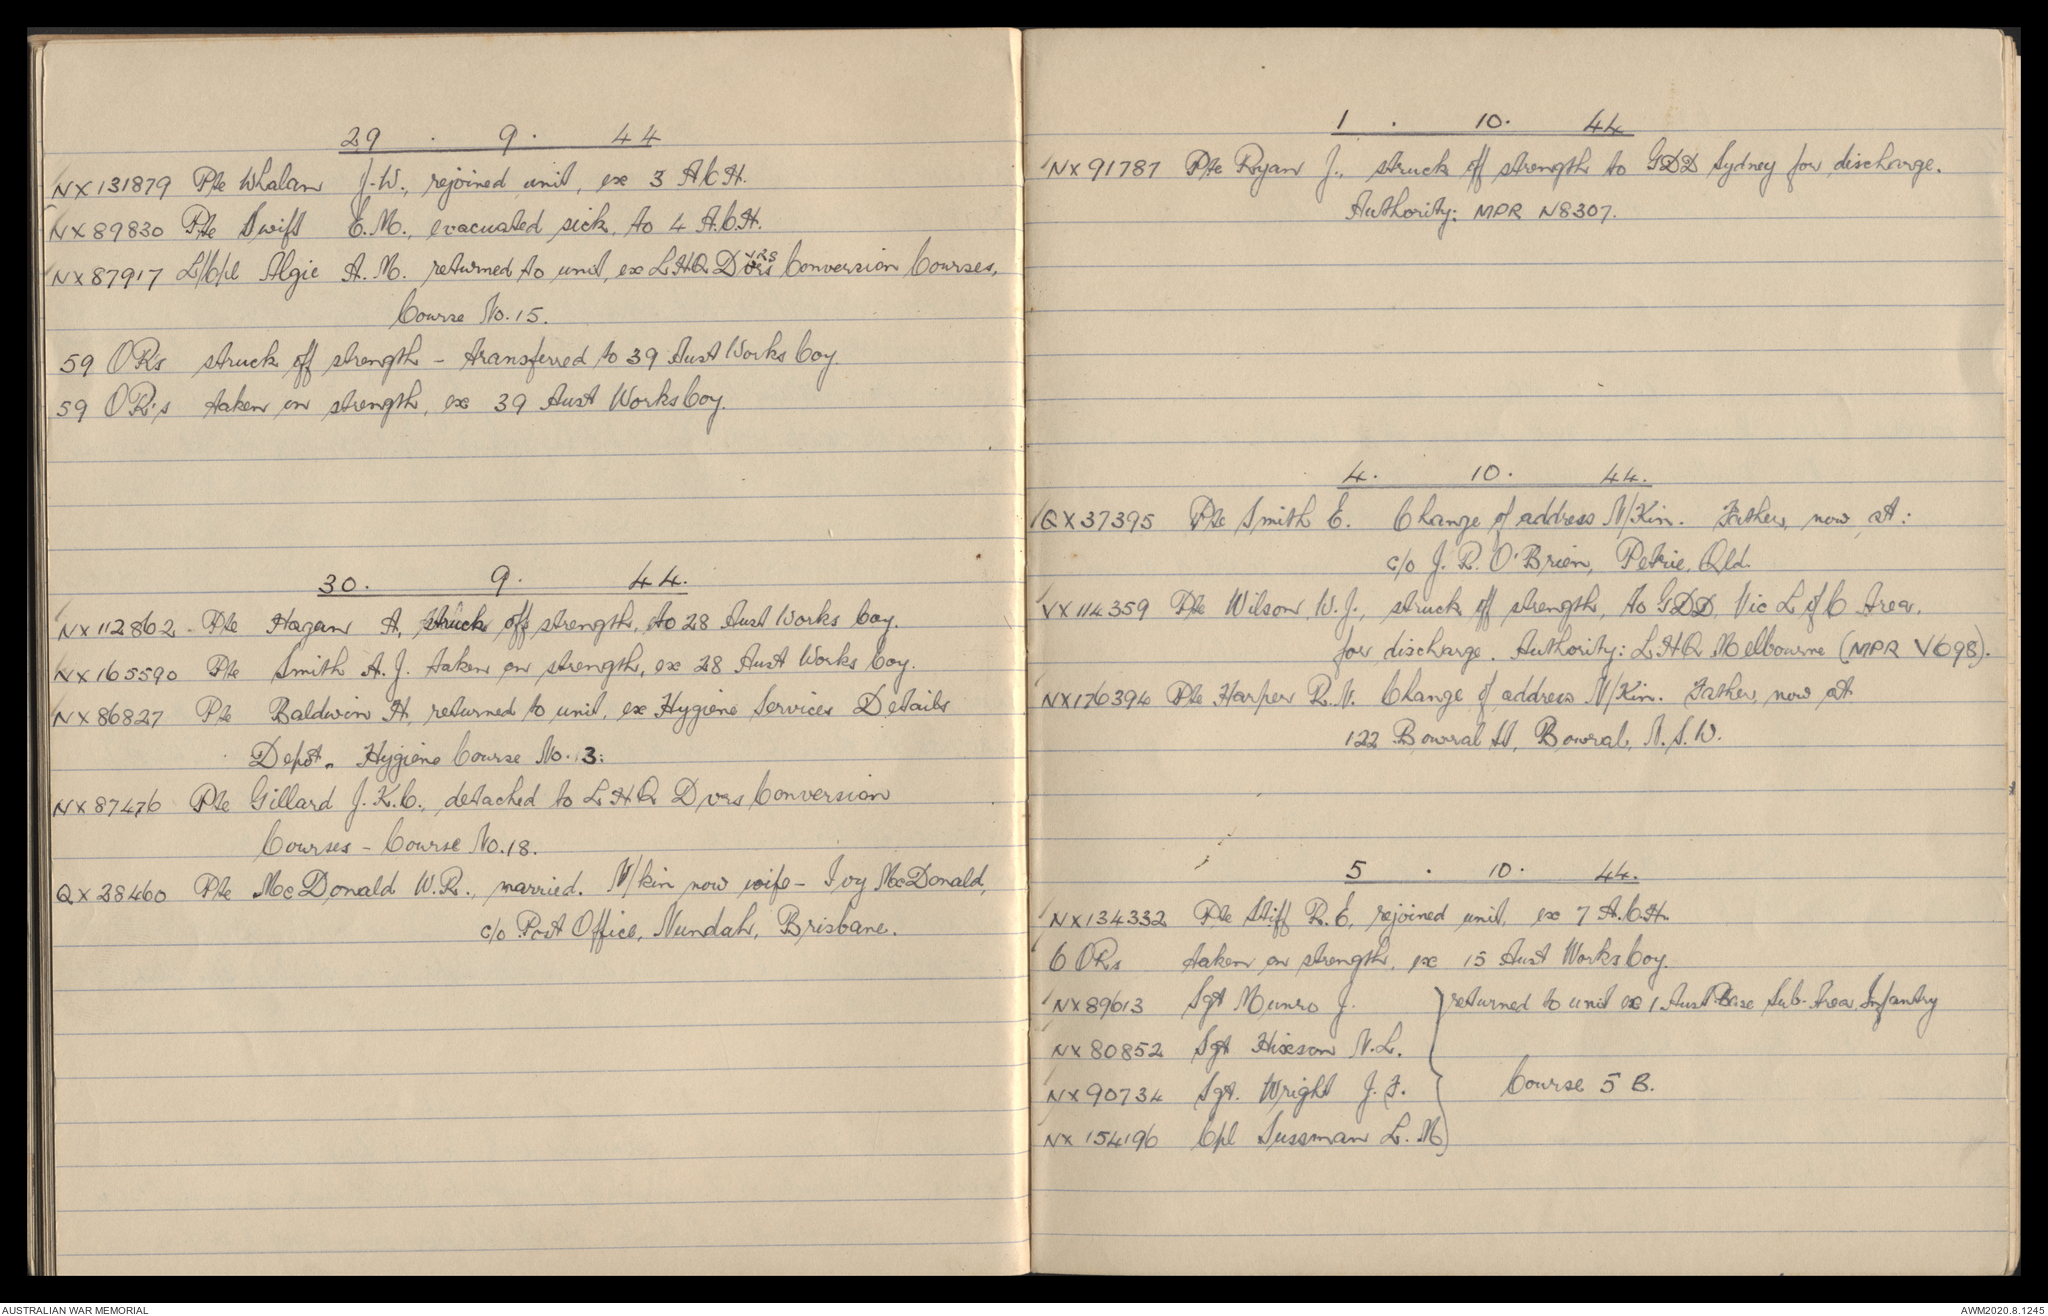 29 . 9. 44
NX131879 Pte Whalan J.W., rejoined unit, ex 3 A.C.H.
NX89830 Pte Swift E.M., evacuated sick, to 4 A.C.H.
NX87917 L/Cpl Algie A.M. returned to unit, ex LHQ Dvrs Conversion Courses,
Course No. 15.
59 ORs struck off strength - transferred to 39 Aust Works Coy.
59 OR's taken on strength, ex 39 Aust Works Coy.
30. 9. 44.
NX112862 Pte Hagan A, struck off strength, to 28 Aust Works Coy.
NX165590 Pte Smith A.J. taken on strength, ex 28 Aust Works Coy.
NX86827 Pte Baldwin H, returned to unit, ex Hygiene Services Details
Depot. Hygiene Course No. 3.
NX87476 Pte Gillard J.K.C., detached to LHQ Dvrs Conversion
Courses - Course No. 18.
QX38460 Pte McDonald W.R., married. N/kin now wife - Ivy McDonald,
c/o Post Office, Nundah, Brisbane.
1 . 10. 44
NX91787 Pte Ryan J., struck off strength to GDD Sydney for discharge.
Authority: MPR N8307.
4. 10. 44.
QX37395 Pte Smith E. Change of address N/Kin. Father, now at:
c/o J.R. O'Brien, Petrie, Qld.
VX114359 Pte Wilson W.J., struck off strength, to GDD, Vic L of C Area,
for discharge. Authority: LHQ Melbourne (MPR V698).
NX176394 Pte Harper R.V. Change of address N/Kin. Father, now at
122 Bowral St, Bowral, N.S.W.
5 . 10. 44.
NX134332 Pte Stiff R.E, rejoined unit, ex 7 A.C.H.
6 ORs taken on strength, ex 15 Aust Works Coy.
NX89613 Sgt Munro J. } returned to unit ex 1 Aust Base Sub-Area Infantry
NX80852 Sgt Hixson N.L.
NX90734 Sgt. Wright J.F. Course 5 B.
NX154196 Cpl Sussman L.M
AUSTRALIAN WAR MEMORIAL
AWM2020.8.1245